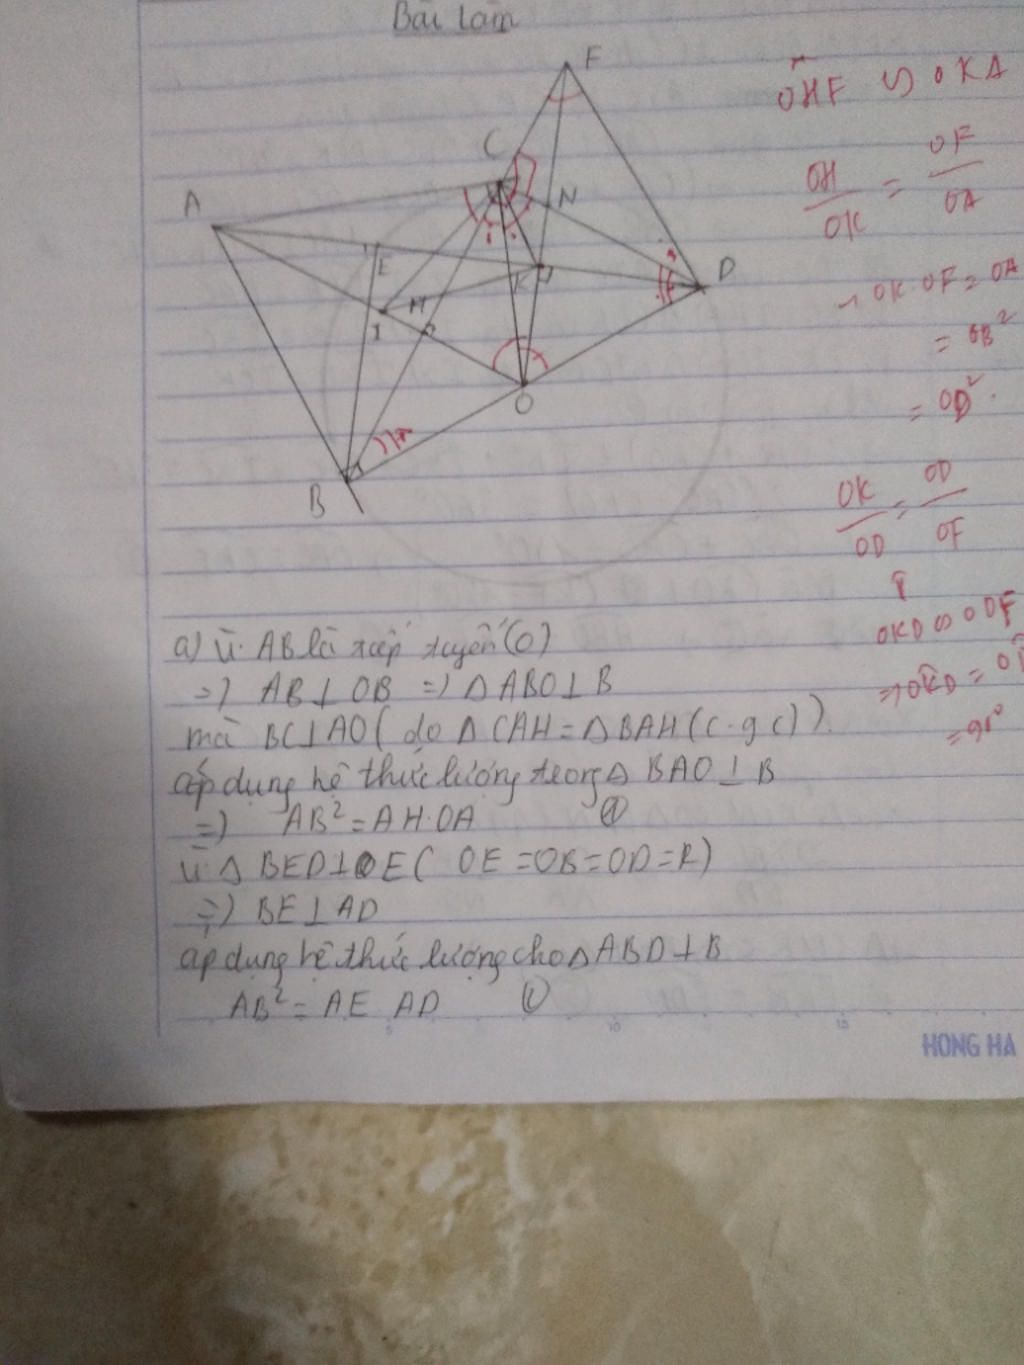 Bài làm
F
C
A
N
E
D
H
K
I
O
B
OHF ∽ OKA
OH/OK = OF/OA
→ OK.OF = OA
= OB²
= OD².
OK/OD = OD/OF
OKD ∽ ODF
=> OK̂D =
= 90°
a) Vì AB là tiếp tuyến (O)
=> AB ⊥ OB => Δ ABO ⊥ B
mà BC ⊥ AO ( do Δ CAH = Δ BAH (c.g c))
áp dụng hệ thức lượng trong Δ BAO ⊥ B
=> AB² = AH.OA ①
Vì Δ BED ⊥ E ( OE = OB = OD = R)
=> BE ⊥ AD
áp dụng hệ thức lượng cho Δ ABD ⊥ B
AB² = AE AD
5 10 15
HONG HA